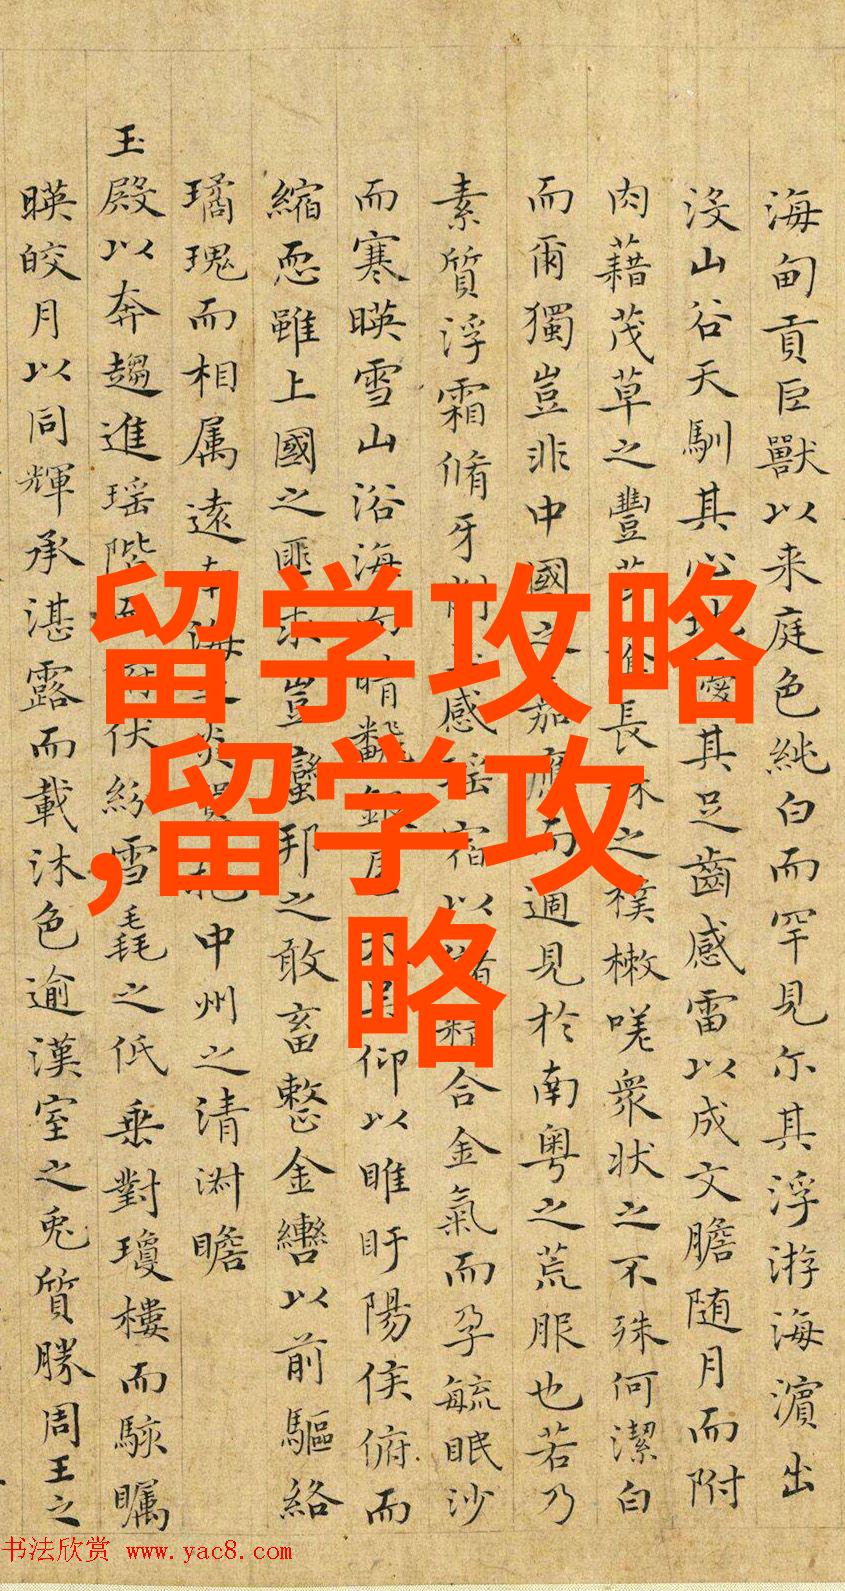 留学攻略
,留学攻
略
海甸貢巨獸以来庭色純白而罕見尔其浮游海濵出
沒山谷天馴其心其足齒感雷以成文膽随月而附
肉藉茂草之豐長林之樸樕嘆衆状之不殊何潔白
而爾獨豈非中國之嘉應而週見於南粤之荒服也若乃
素質浮霜脩牙感瑶宿以合金氣而孕毓眠沙
而寒暎雪山浴海而晴飜銀屋仰以睢盱陽侯俯而
縮恧雖上國之匪求豈蠻邦之敢畜整金轡以前驅絡
璚瑰而相属遠海之炎中州之清淑瞻
玉殿以奔趨進瑶階伏紛雪毳之低垂對瓊樓而駭矚
暎皎月以同輝承湛露而載沐色逾漢室之兎質勝周王之
书法欣赏 www.yac8.com